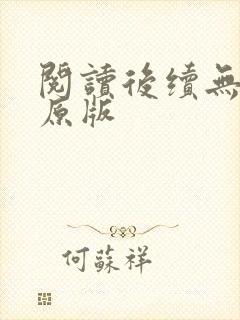 閱讀後續無
原版
何蘇祥